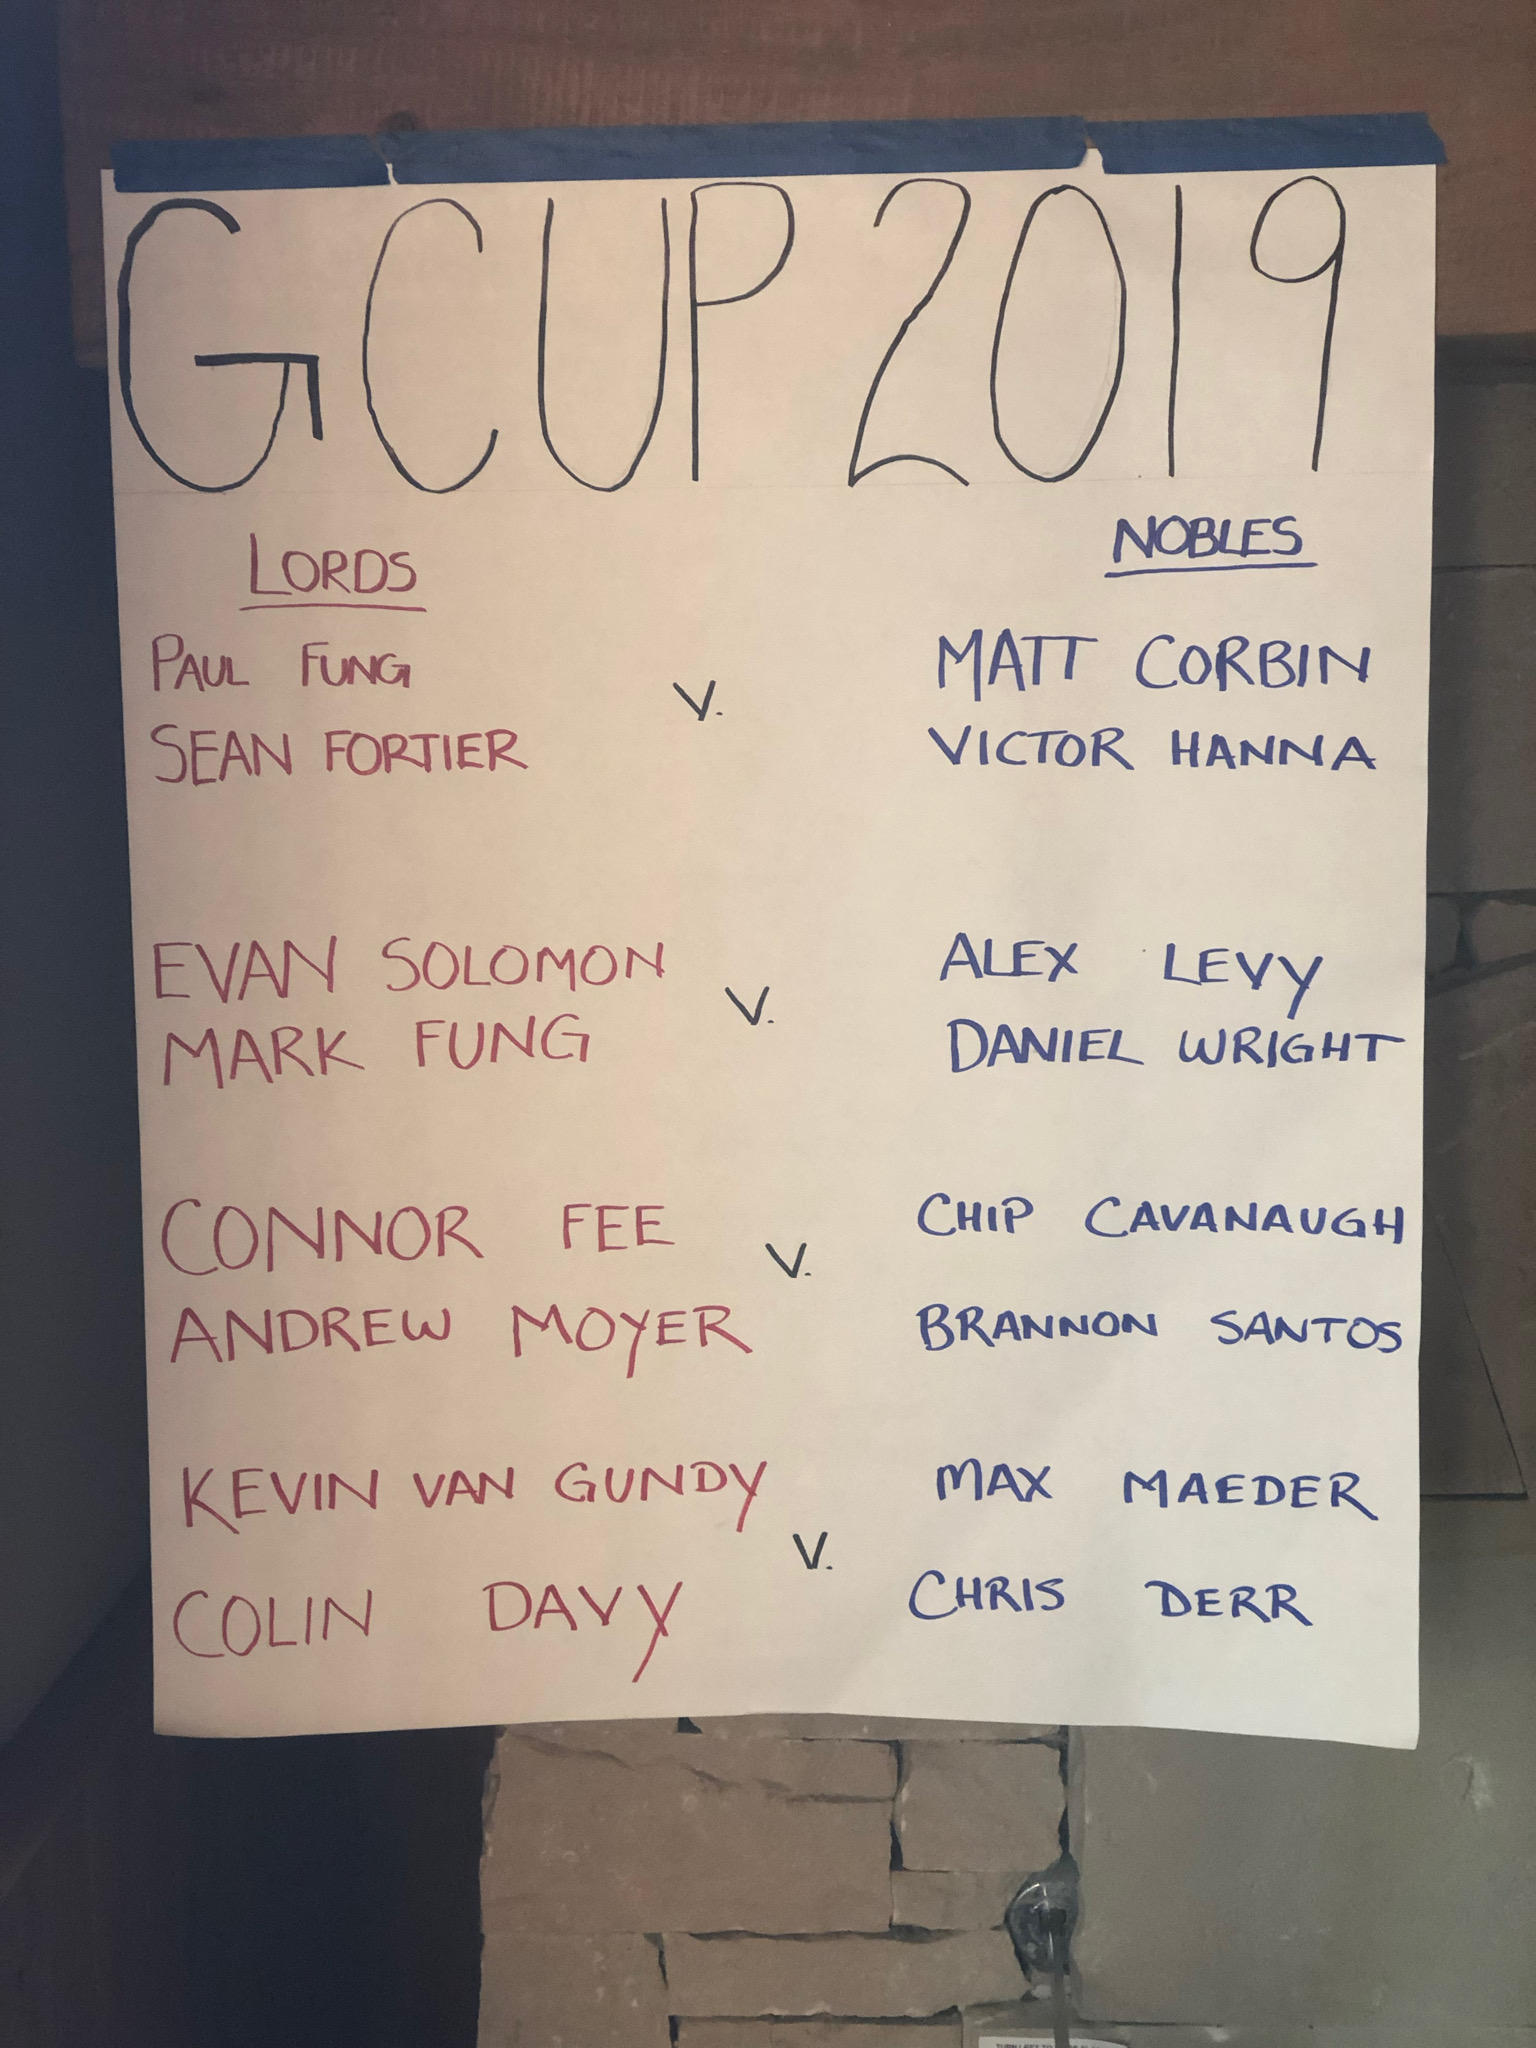 G CUP 2019
LORDS NOBLES
PAUL FUNG MATT CORBIN
V.
SEAN FORTIER VICTOR HANNA
EVAN SOLOMON ALEX LEVY
V.
MARK FUNG DANIEL WRIGHT
CONNOR FEE CHIP CAVANAUGH
V.
ANDREW MOYER BRANNON SANTOS
KEVIN VAN GUNDY MAX MAEDER
V.
COLIN DAVY CHRIS DERR